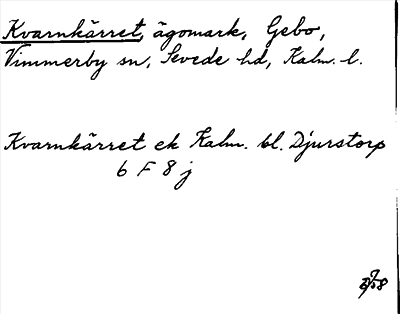 Kvarnkärret, ägomark, Gebo,
Vimmerby sn, Sevede hd, Kalm. l.
Kvarnkärret ek Kalm. bl. Djurstorp
6 F 8 j